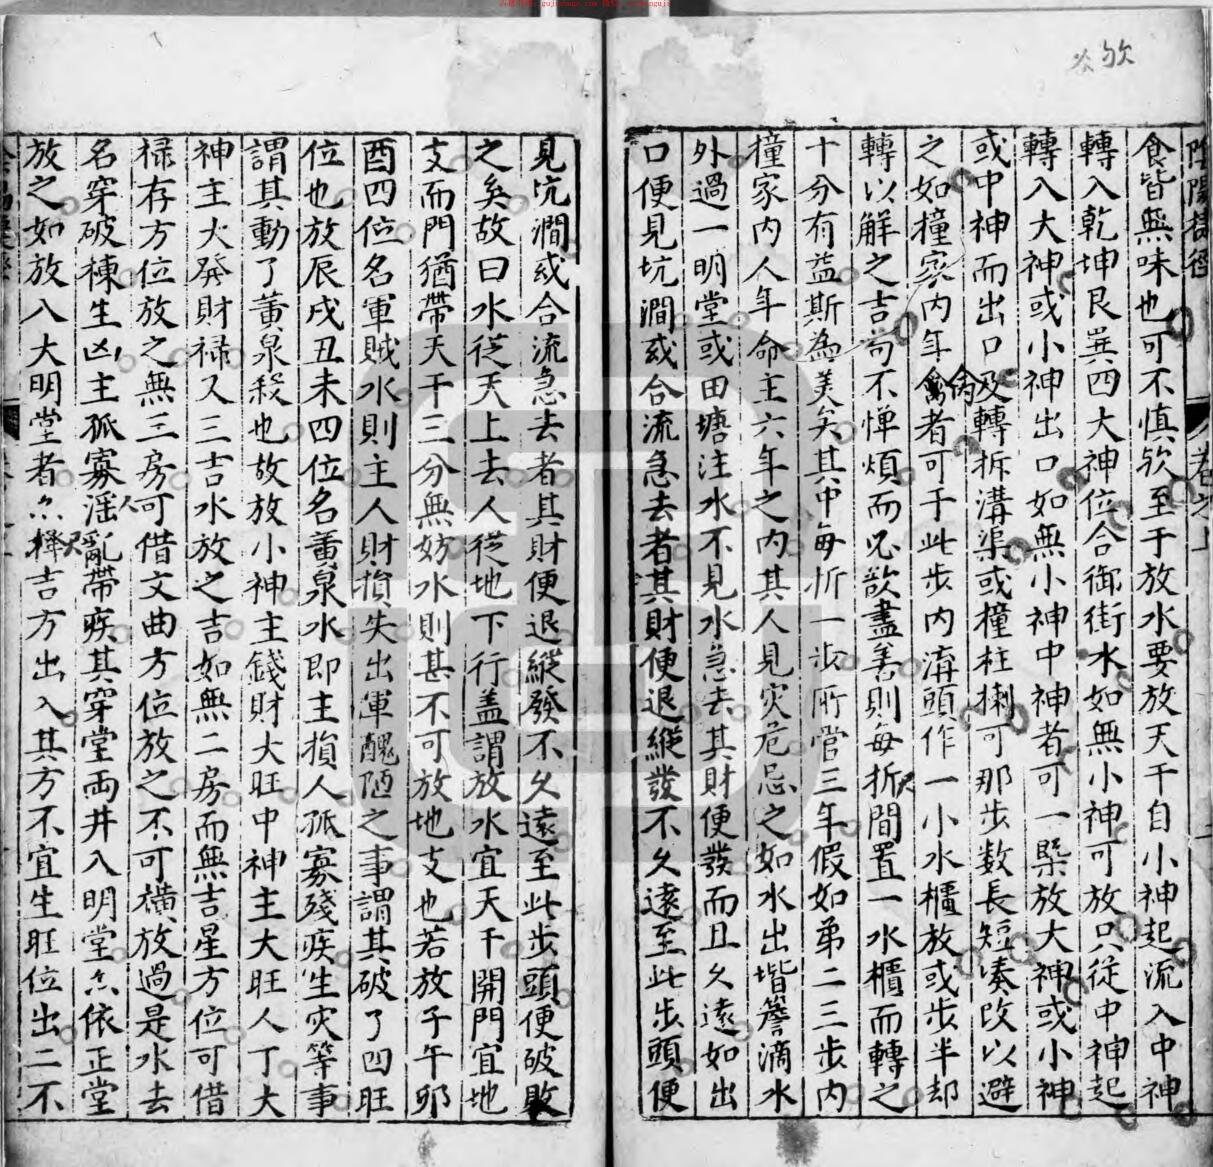 食皆無味也可不慎欤至于放水要放天干自小神起流入中神
轉入乾坤艮巽四大神位合御街水如無小神可放只從中神起
轉入大神或小神出口如無小神中神者可一槩放大神或小神
或中神而出口及轉拆溝渠或撞柱捌可那步數長短凑改以避
之如撞家内年禽者可于此步内溝頭作一小水櫃放或步半却
轉以解之吉苟不憚煩而必歆盡善則每折間置一水櫃而轉之
十分有益斯為美矣其中每折一步所管三年假如第二三步内
撞家内人年命主六年之内其人見灾危忌之如水出堦簷滴水
外過一明堂或田塘注水不見水急去其財便發而且久遠如出
口便見坑澗或合流急去者其財便退縱發不久遠至此步頭便
見坑澗或合流急去者其財便退縱發不久遠至此步頭便破敗
之矣故曰水從天上去人從地下行盖謂放水宜天干開門宜地
支而門猶帶天干三分無妨水則甚不可放地支也若放子午卯
酉四位名軍賊水則主人財損失出軍醜陋之事謂其破了四旺
位也放辰戌丑未四位名黄泉水即主損人孤寡殘疾生灾等事
謂其動了黄泉殺也故放小神主錢財大旺中神主大旺人丁大
神主大發財禄又三吉水放之吉如無二房而無吉星方位可借
禄存方位放之無三房可借文曲方位放之不可横放過是水去
名穿破棟生凶主孤寡滛亂帶疾其穿堂兩井入明堂亦依正堂
放之如放八大明堂者亦擇吉方出入其方不宜生旺位出二不